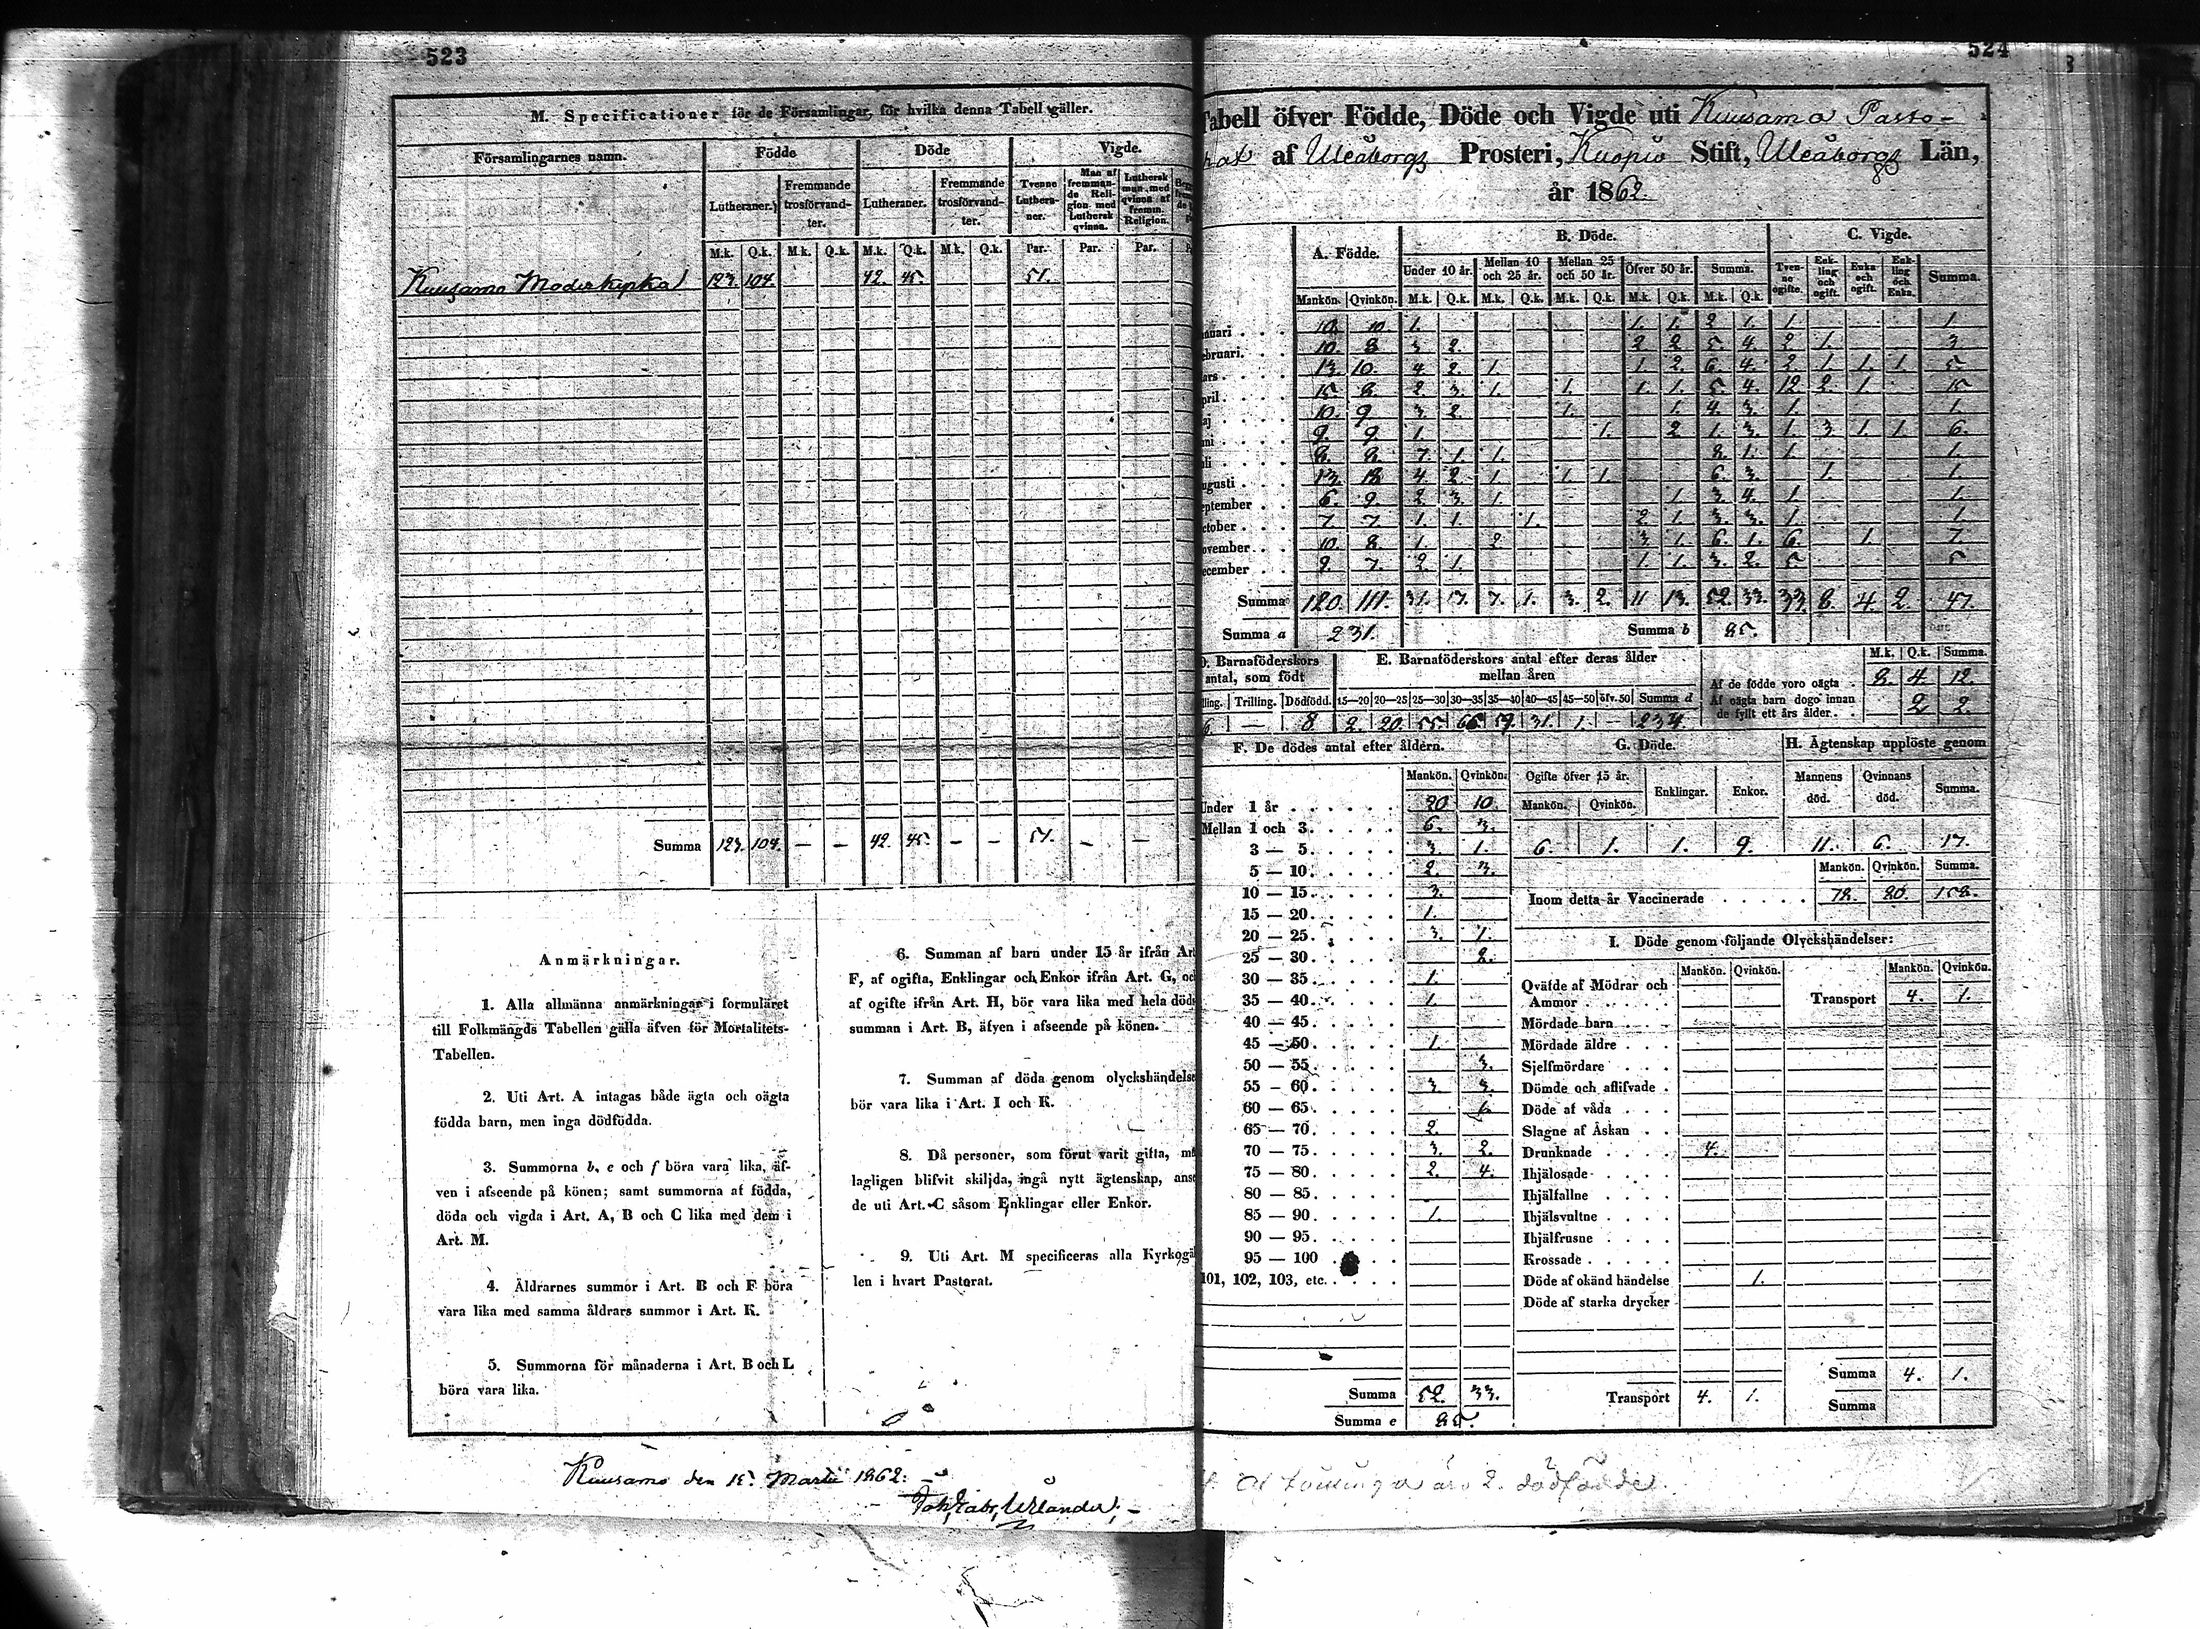 523
M. Specificationer för de Församlingar, för hvilka denna Tabell gäller.
Församlingarnes namn. Födde Döde Vigde.
Lutheraner. Fremmande trosförvandter. Lutheraner. Fremmande trosförvandter. Tvenne Lutheraner. Man af fremmande Religion med Luthersk qvinna. Luthersk man med qvinna af fremm. Religion.
M.k. Q.k. M.k. Q.k. M.k. Q.k. M.k. Q.k. Par. Par. Par.
Kuusamo Moderkyrka 123. 104. 42. 45. 51.
Summa 123. 104. — — 42. 45. — — 51. — —
Anmärkningar.
1. Alla allmänna anmärkningar i formuläret
till Folkmängds Tabellen gälla äfven för Mortalitets-
Tabellen.
2. Uti Art. A intagas både ägta och oägta
födda barn, men inga dödfödda.
3. Summorna b, e och f böra vara lika, äf-
ven i afseende på könen; samt summorna af födda,
döda och vigda i Art. A, B och C lika med dem i
Art. M.
4. Åldrarnes summor i Art. B och F böra
vara lika med samma åldrars summor i Art. K.
5. Summorna för månaderna i Art. B och L
böra vara lika.
6. Summan af barn under 15 år ifrån Art
F, af ogifta, Enklingar och Enkor ifrån Art. G, oc
af ogifte ifrån Art. H, bör vara lika med hela död
summan i Art. B, äfven i afseende på könen.
7. Summan af döda genom olyckshändelse
bör vara lika i Art. I och K.
8. Då personer, som förut varit gifta, m
lagligen blifvit skiljda, ingå nytt ägtenskap, ans
de uti Art. C såsom Enklingar eller Enkor.
9. Uti Art. M specificeras alla Kyrkogä
len i hvart Pastorat.
Kuusamo den 15. Martii 1862.
524
Tabell öfver Födde, Döde och Vigde uti Kuusamo Pasto-
rat af Uleåborgs Prosteri, Kuopio Stift, Uleåborgs Län,
år 1862.
A. Födde. B. Döde. C. Vigde.
Under 10 år. Mellan 10 och 25 år. Mellan 25 och 50 år. Öfver 50 år. Summa. Tvenne ogifte. Enkling och ogift. Enka och ogift. Enkling och Enka. Summa.
Mankön. Qvinkön. M.k. Q.k. M.k. Q.k. M.k. Q.k. M.k. Q.k. M.k. Q.k.
nuari 10. 10. 1. 1. 1. 2. 1. 1. 1.
ebruari. 10. 8. 3. 2. 2 2 5. 4. 2. 1. 3.
ars 13. 10. 4. 2. 1. 1. 2. 6. 4. 2. 1. 1. 1. 5.
pril 15. 8. 2. 3. 1. 1. 1. 1. 5. 4. 12. 2. 1. 15.
aj 10. 9. 3. 2. 1. 1. 4. 3. 1. 1.
ni 9. 9. 1. 1. 2 1. 3. 1. 3. 1. 1. 6.
li 8. 8. 7. 1. 1. 8. 1. 1 1.
ugusti 13. 18. 4. 2. 1. 1. 1. 6. 3. 1. 1.
eptember 6. 9. 2. 3. 1. 1. 3. 4. 1. 1.
ctober 7. 7. 1. 1. 1. 2. 1. 3. 3. 1. 1
ovember 10. 8. 1. 2 3. 1. 6. 1. 6. 1. 7.
ecember 9. 7. 2. 1. 1. 1. 3. 2. 5 5
Summa 120. 111. 31. 17. 7. 1. 3. 2. 11 13. 52. 33. 33. 8. 4. 2. 47.
Summa a 231. Summa b 85.
D. Barnaföderskors antal, som födt E. Barnaföderskors antal efter deras ålder mellan åren
M.k. Q.k. Summa.
lling. Trilling. Dödfödd. 15—20 20—25 25—30 30—35 35—40 40—45 45—50 öfv. 50 Summa d
6. — 8 2. 20. 55. 66. 59. 31. 1. — 234.
Af de födde voro oägta 8. 4. 12.
Af oägta barn dogo innan de fyllt ett års ålder 2 2.
F. De dödes antal efter åldern. G. Döde. H. Ägtenskap upplöste genom
Mankön. Qvinkön. Ogifte öfver 15 år. Enklingar. Enkor. Mannens död. Qvinnans död. Summa.
Mankön. Qvinkön.
6. 1. 1. 9. 11. 6. 17.
Mankön. Qvinkön. Summa.
Inom detta år Vaccinerade 78. 80. 158.
Under 1 år 20 10.
Mellan 1 och 3. 6. 3.
3 — 5. 3. 1.
5 — 10. 2. 3.
10 — 15. 3.
15 — 20. 1.
20 — 25. 3. 1.
25 — 30. 2.
30 — 35. 1.
35 — 40. 1.
40 — 45.
45 — 50. 1.
50 — 55. 3.
55 — 60. 3 3.
60 — 65.
65 — 70. 2.
70 — 75. 3. 2.
75 — 80. 2. 4.
80 — 85.
85 — 90. 1.
90 — 95.
95 — 100
101, 102, 103, etc.
Summa 52. 33.
Summa e 85.
I. Döde genom följande Olyckshändelser:
Mankön. Qvinkön. Mankön. Qvinkön.
Qväfde af Mödrar och Ammor
Transport 4. 1.
Mördade barn
Mördade äldre
Sjelfmördare
Dömde och aflifvade
Döde af våda
Slagne af Åskan
Drunknade 4.
Ihjälosade
Ihjälfallne
Ihjälsvultne
Ihjälfrusne
Krossade
Döde af okänd händelse 1.
Döde af starka drycker
Summa 4. 1.
Transport 4. 1.
Summa
äro 2. dödfödde.